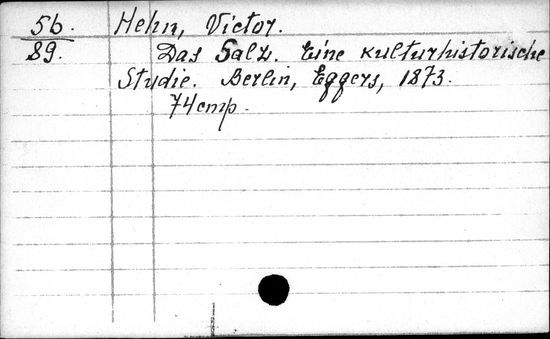 56. Hehn, Victor.
89. Das Salz. Eine kulturhistorische
Studie. Berlin, Eggers, 1873.
74 cmp.